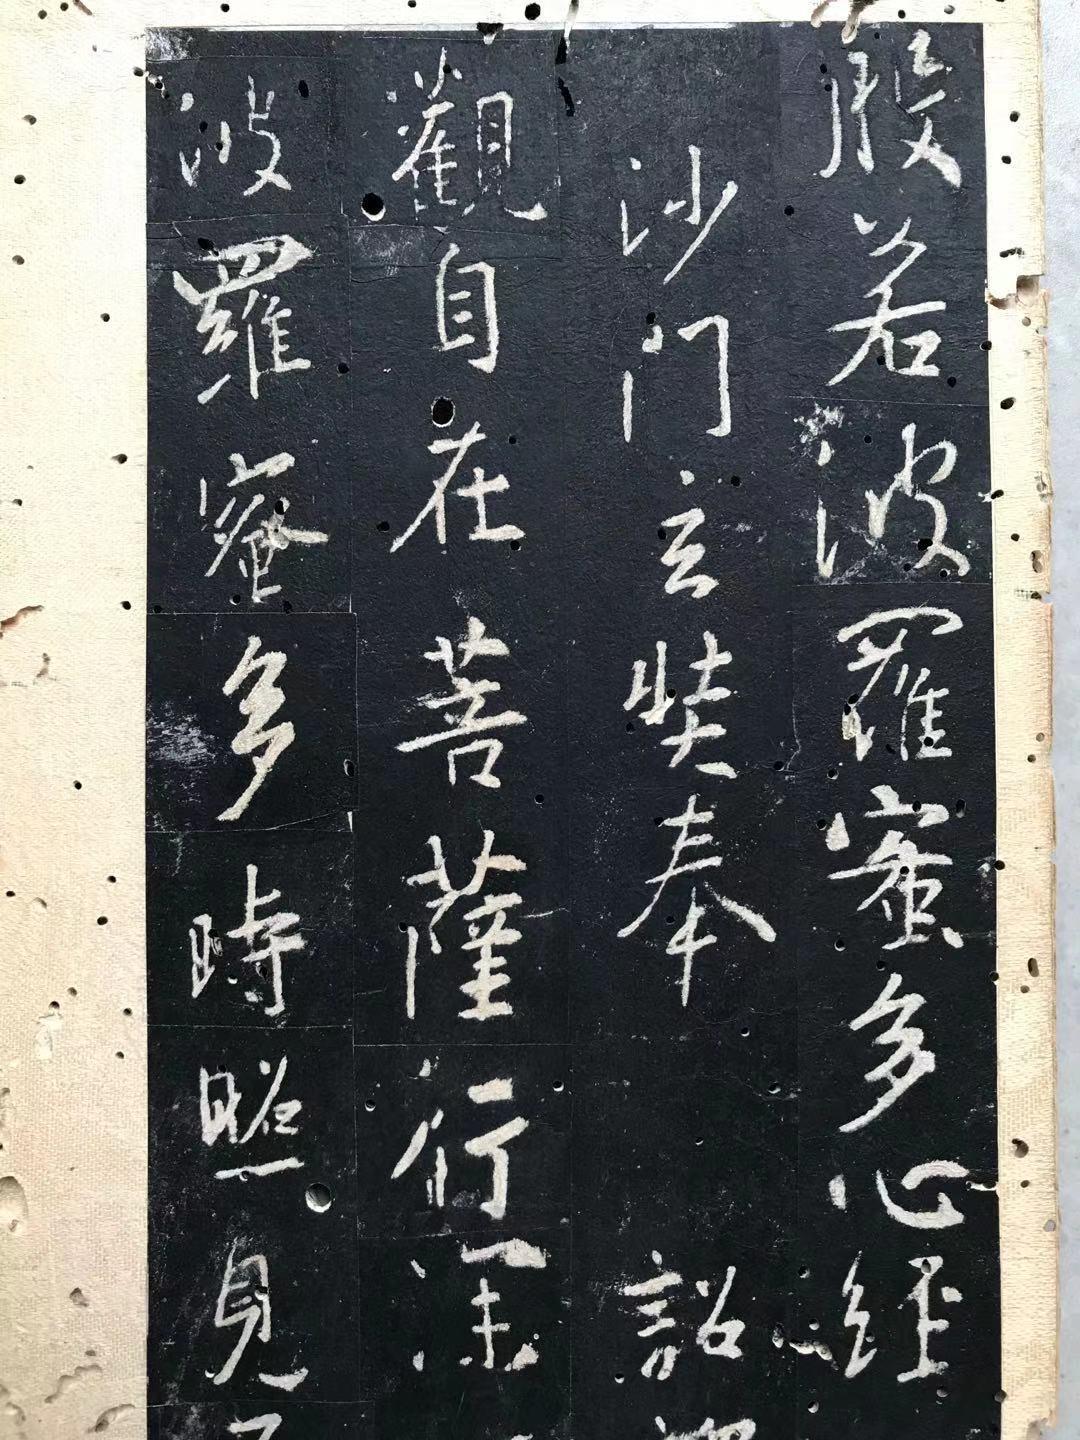 般若波羅蜜多心經
沙門玄奘奉 詔
觀自在菩薩行深
波羅蜜多時照見